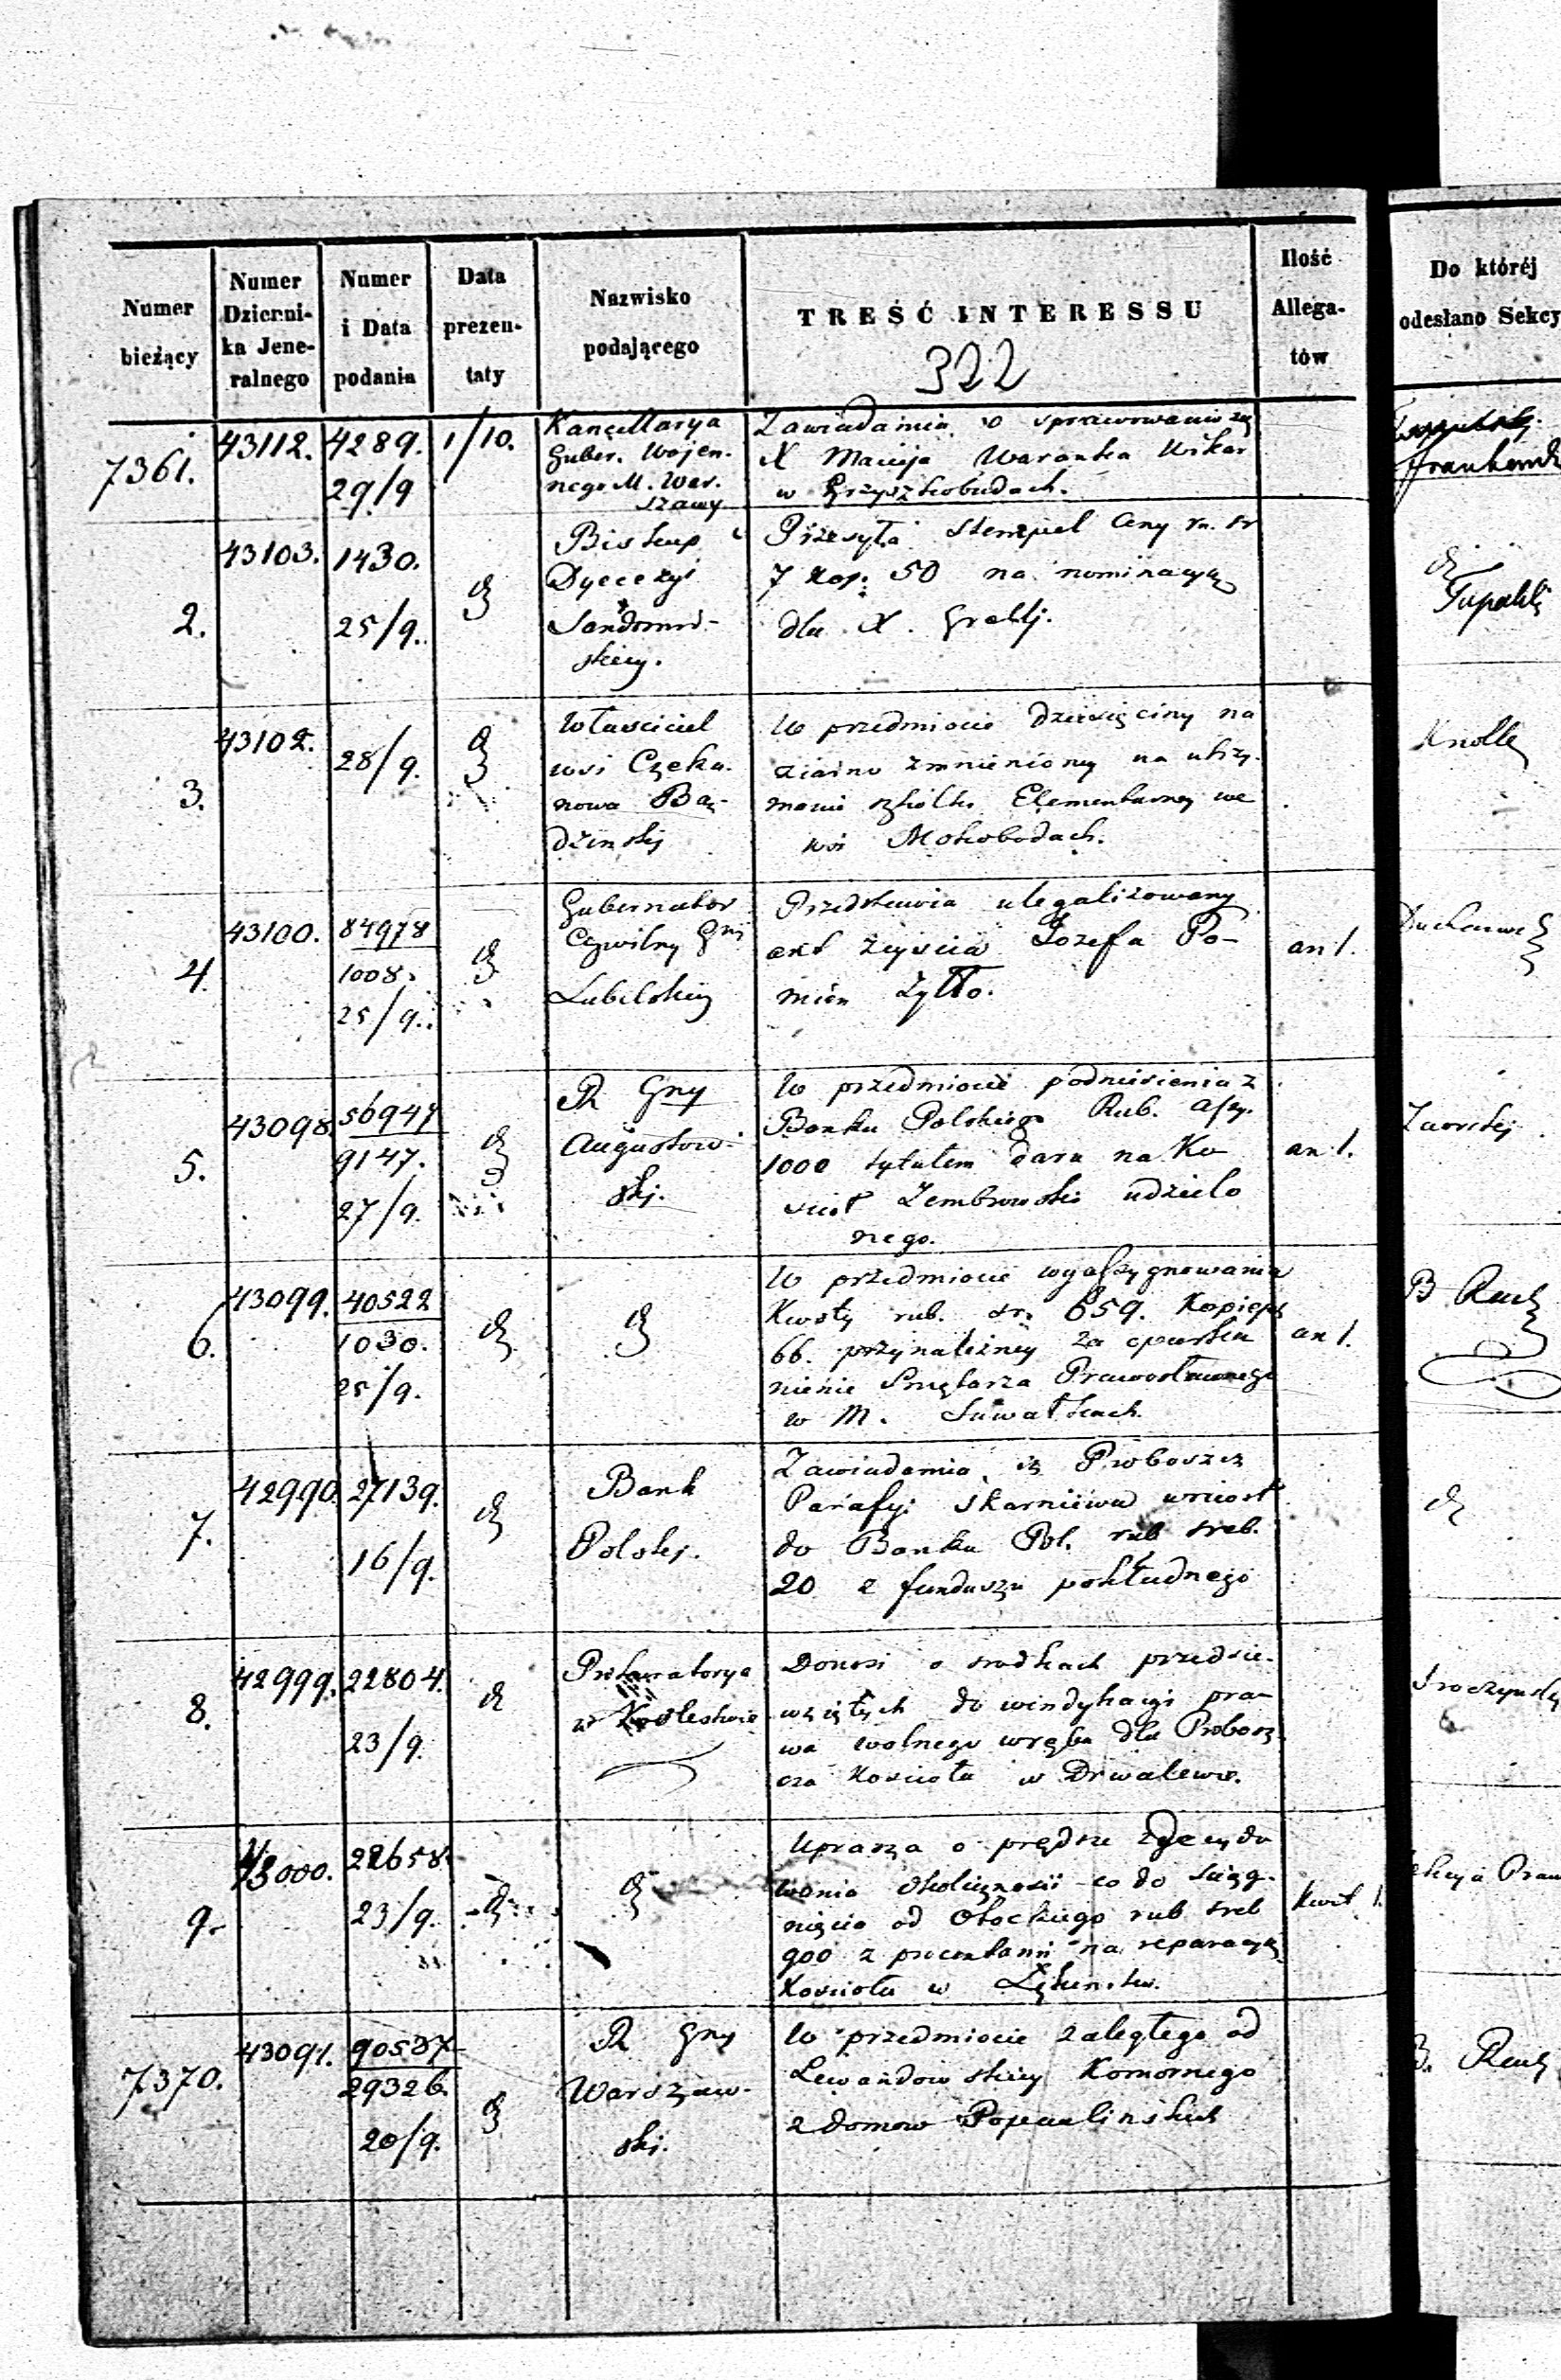 Numer bieżący
Numer Dzienni-ka Jene-ralnego
Numer i Data podania
Data prezen-taty
Nazwisko podającego
TREŚĆ INTERESSU
322
Ilość Allega-tów
Do któréj odesłano Sekcy
7361.
43112.
4289.
29/9
1/10.
Kancellarya
Guber. Wojen.
nego M. War.
szawy
Zawiadamia o sprawowaniu się
X Macieja Waranka Wikar
w Grzyszkobudach.
2.
43103.
1430.
25/9.
Biskup
Dyecezyi
Sandomir-
skiey.
Przesyła stempel Ceny rn. sr
7 kop: 50 na nominacyą
dla X.
3.
43102.
28/9.
Właściciel
wsi Czeka.
nowa Bą-
dzinskj
W przedmiocie dziesięciny na
ziarno zmienioney na utrzy.
manie szkółki Elementarney we
wsi Mokobodach.
Knolle
4.
43100.
84978
1008.
25/9.
Gubernator
Cywilny Gnj
Lubelskiey
Przedstawia ulegalizowany
akt zeyscia Jozefa Po-
mian Żyłło.
an 1.
5.
43098.
56947
9147.
27/9.
R Gny
Augustow-
skj.
W przedmiocie podniesienia z
Banku Polskiego Rub. assy.
1000 tytułem daru na Ko
sciół Zembrowski udzielo
nego.
an 1.
6.
43099.
40522
1030.
25/9.
W przedmiocie wyassygnowania
Kwoty rub. sr. 659. Kopiejek
66. przynależney za oparka
nienie Smętarza Prawosławnego
w M. Suwałkach.
an 1.
B
7.
42990.
27139.
16/9.
Bank
Polskj.
Zawiadamia, iż Proboszcz
Parafyi Skarniewa wniosł
do Banku Pol. rub sreb.
20 z funduszu pokładnego
8.
42999.
22804.
23/9.
Prokuratorya
w Krolestwie
Donosi o srodkach przedsie-
wziętych do windykacyi pra-
wa wolnego wrębu dla Probosz
cza Kościoła w Drwalewie.
9.
43000.
22658.
23/9.
Uprasza o prędsze zdecydo
wanie okoliczności co do ściąg-
nięcia od Otockiego rub sreb
900 z procentami na reparacyą
Kościoła w
Kwit 1.
7370.
43091.
90537
29326.
20/9.
R Gny
Warszaw-
skj.
W przedmiocie zaległego od
Lewandowskiey Komornego
z domow Popaulińskich
B.